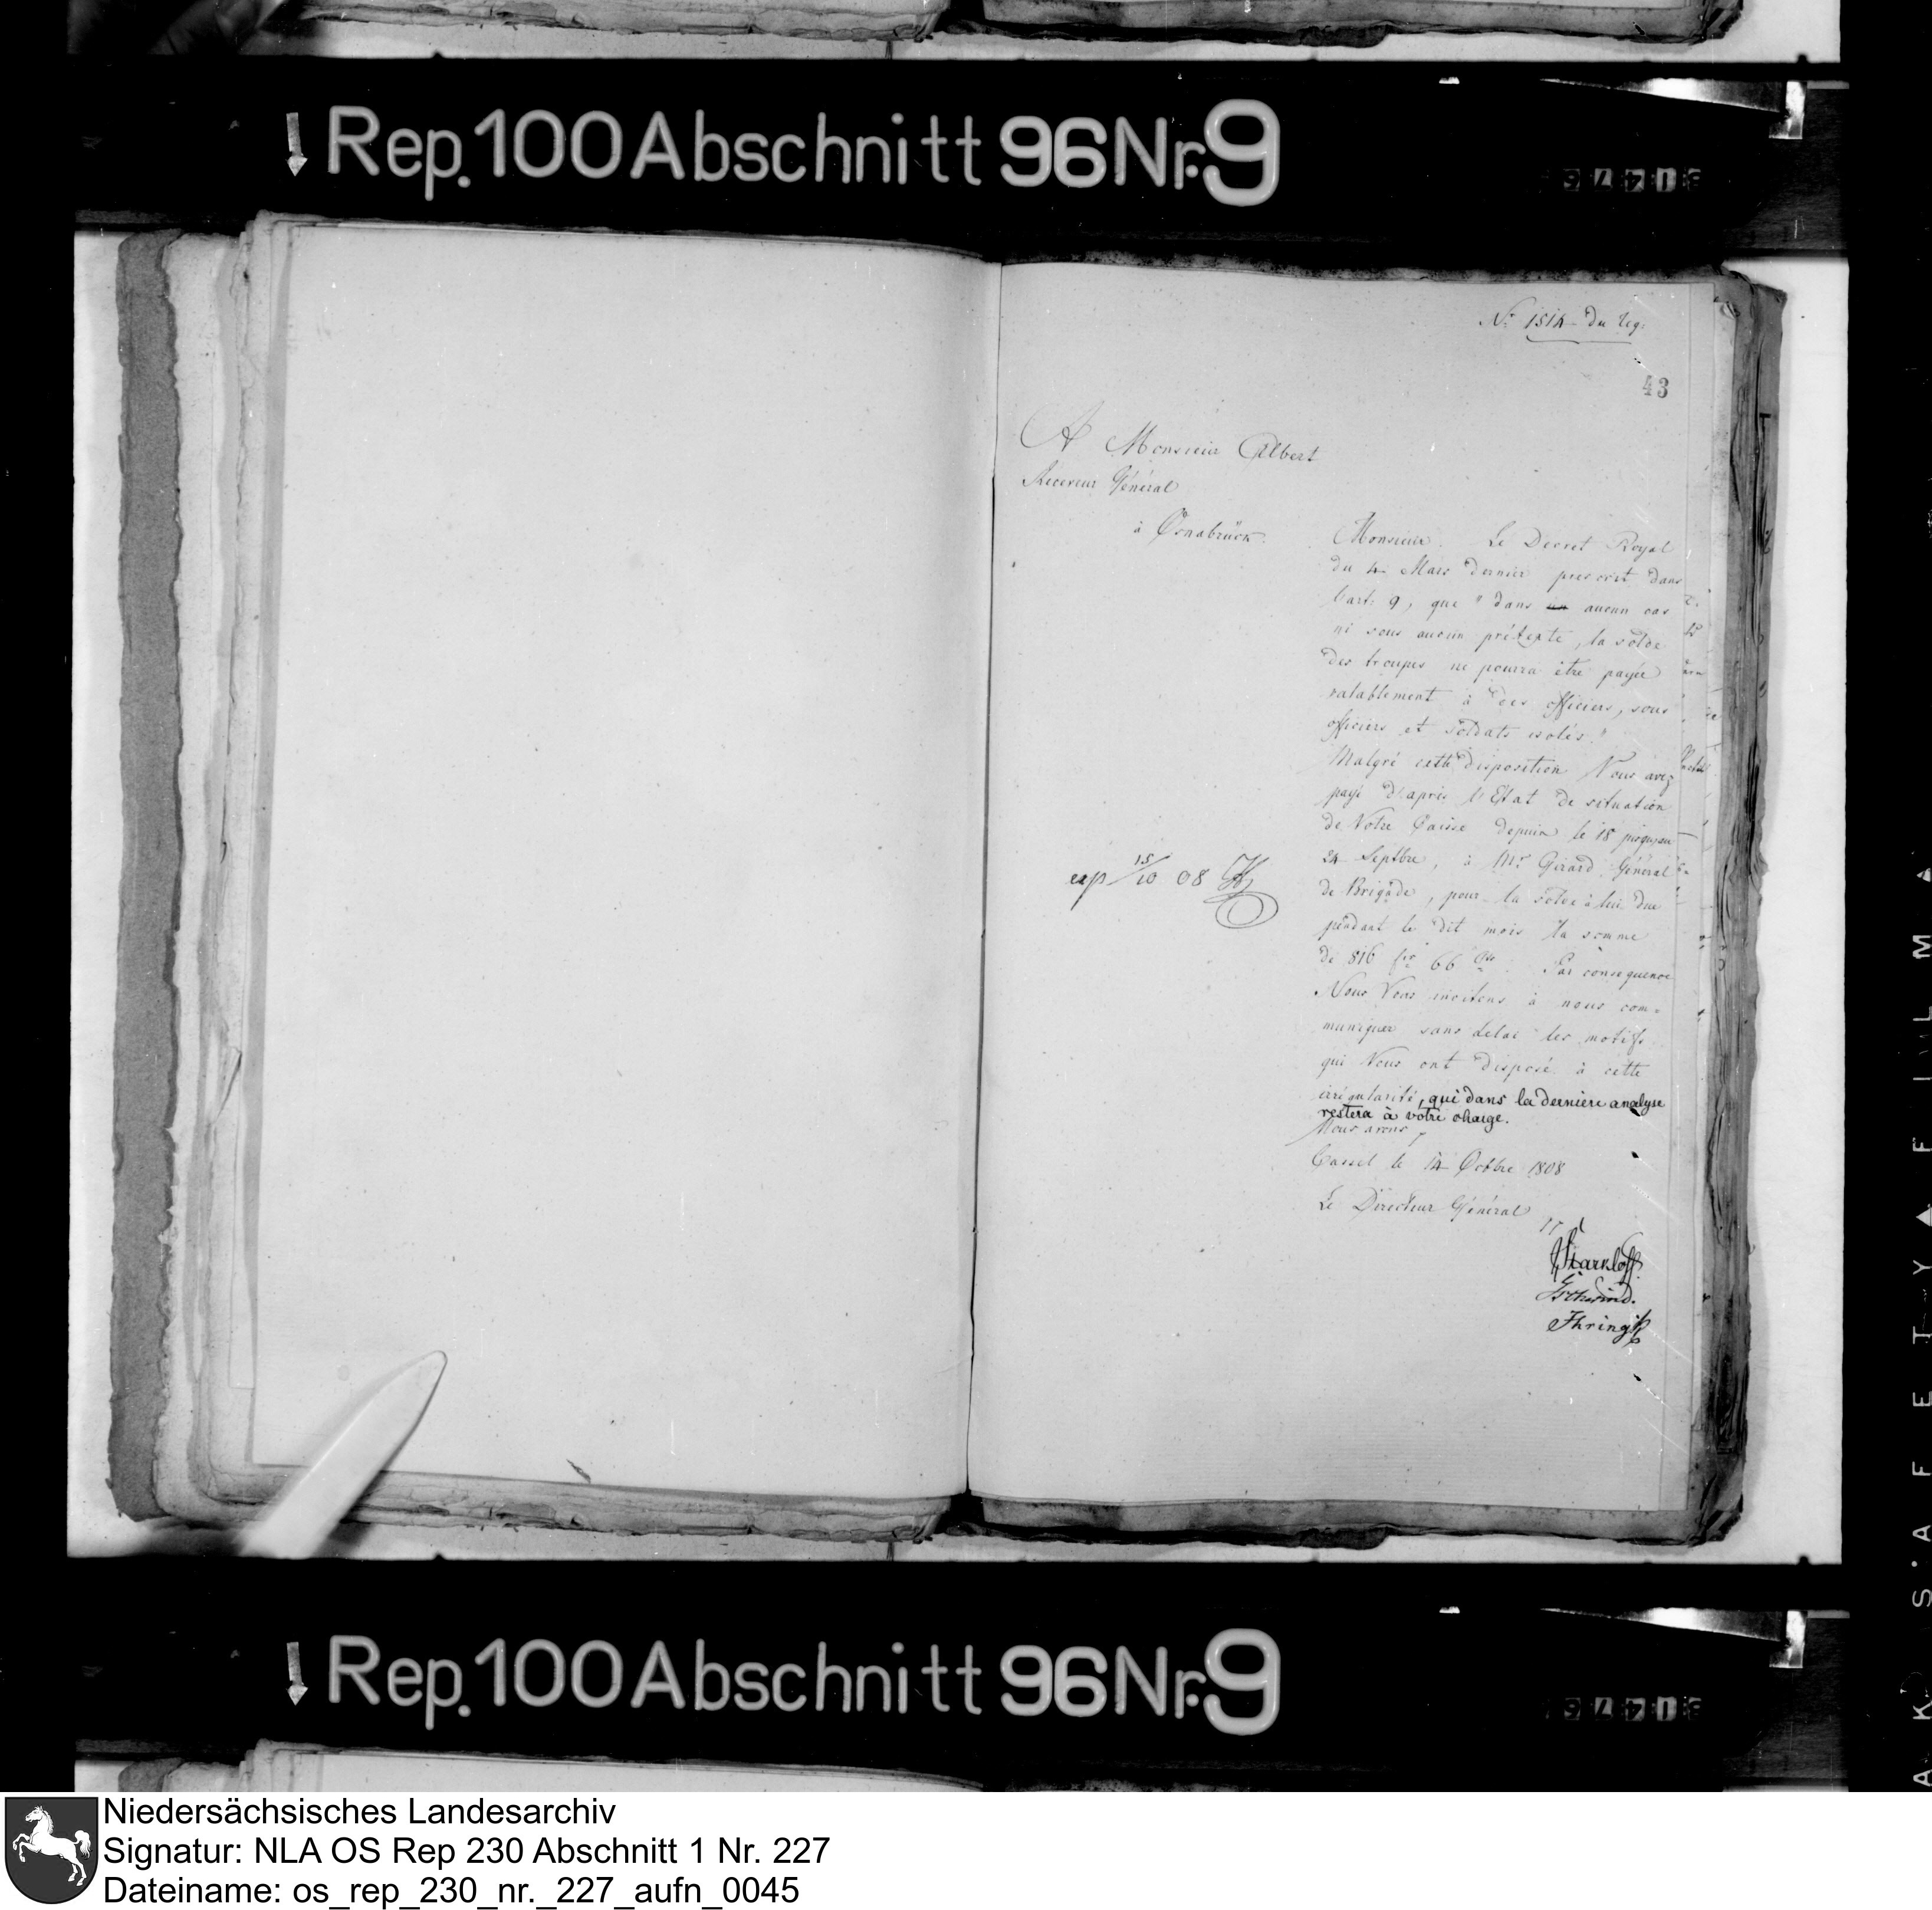 Rep. 100 Abschnitt 96 Nr. 9
No 1514 du reg:
43
A Monsieur Albert
Receveur Général
à Osnabrück.
Monsieur. Le Decret Royal
du 4 Mars dernier prescrit dans
l'art: 9, que "dans aucun cas
ni sous aucun prétexte, la solde
des troupes ne pourra être payée
valablement à des officiers, sous
officiers et soldats isolés."
Malgré cette disposition Vous avez
payé d'après l'Etat de situation
de Votre Caisse depuis le 18 jusqu'au
24 Septbre, à Mr Girard Général
de Brigade, pour la solde à lui due
pendant le dit mois la somme
de 816 frs 66 Cs. Par consequence
Nous Vous invitons à nous com=
muniquer sans delai les motifs
qui Vous ont disposé à cette
irrégularité, qui dans la derniere analyse
restera à votre charge.
Nous avons
Cassel le 14 Octbre 1808
Le Directeur Général
exp 15/10 08
Starkloff
Ihring
Rep. 100 Abschnitt 96 Nr. 9
SAFETY FILM
Niedersächsisches Landesarchiv
Signatur: NLA OS Rep 230 Abschnitt 1 Nr. 227
Dateiname: os_rep_230_nr._227_aufn_0045